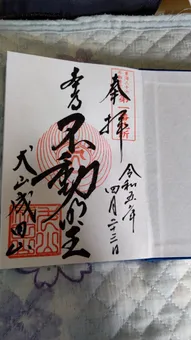 奉拝
令和五年
四月二十三日
不動明王
犬山成田山